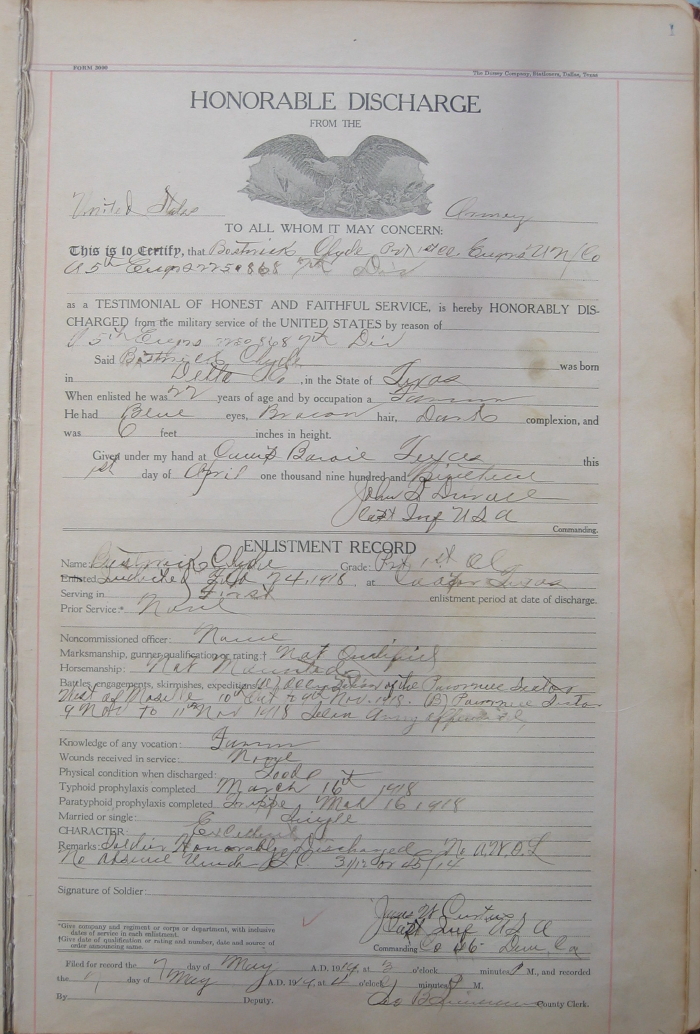 1
FORM 3000
The Dorsey Company, Stationers, Dallas, Texas
HONORABLE DISCHARGE
FROM THE
United States Army
TO ALL WHOM IT MAY CONCERN:
This is to Certify, that Bostwick Clyde Pvt 1st Cl Engrs
A 5th Engrs 2250868 7th Div
as a TESTIMONIAL OF HONEST AND FAITHFUL SERVICE, is hereby HONORABLY DIS-
CHARGED from the military service of the UNITED STATES by reason of
A 5th Engrs 2250868 7th Div
Said Bostwick Clyde was born
in Delta Co, in the State of Texas
When enlisted he was 22 years of age and by occupation a Farmer
He had Blue eyes, Brown hair, Dark complexion, and
was 6 feet inches in height.
Given under my hand at Camp Bowie Texas this
1st day of April one thousand nine hundred and Nineteen
John
Capt Inf USA
Commanding.
ENLISTMENT RECORD
Name: Bostwick Clyde Grade: Pvt 1st Cl
Enlisted Inducted Feb 24, 1918, at Cooper Texas
Serving in First enlistment period at date of discharge.
Prior Service:* None
Noncommissioned officer: None
Marksmanship, gunner qualification or rating † Not Qualified
Horsemanship: Not Mounted
Battles, engagements, skirmishes, expeditions of the Puvornee Sector
West of Moselle 10th Oct to 9th Nov. 1918. (B) Puvornee Sector
9 Nov to 11th Nov 1918 Army offensive
Knowledge of any vocation: Farmer
Wounds received in service: None
Physical condition when discharged: Good
Typhoid prophylaxis completed March 16th 1918
Paratyphoid prophylaxis completed Mch 16 1918
Married or single: Single
CHARACTER: Excellent
Remarks: Soldier Honorable Discharged No A.W.O.L
No Absence Under 45/14
Signature of Soldier:
*Give company and regiment or corps or department, with inclusive
dates of service in each enlistment.
†Give date of qualification or rating and number, date and source of
order announcing same.
Capt Inf USA
Commanding Co
Filed for record the 7 day of May A.D. 1919, at 3 o'clock minutes P M., and recorded
the day of May A.D. 1919, at 4 o'clock minutes P M.
By Deputy. Geo B County Clerk.